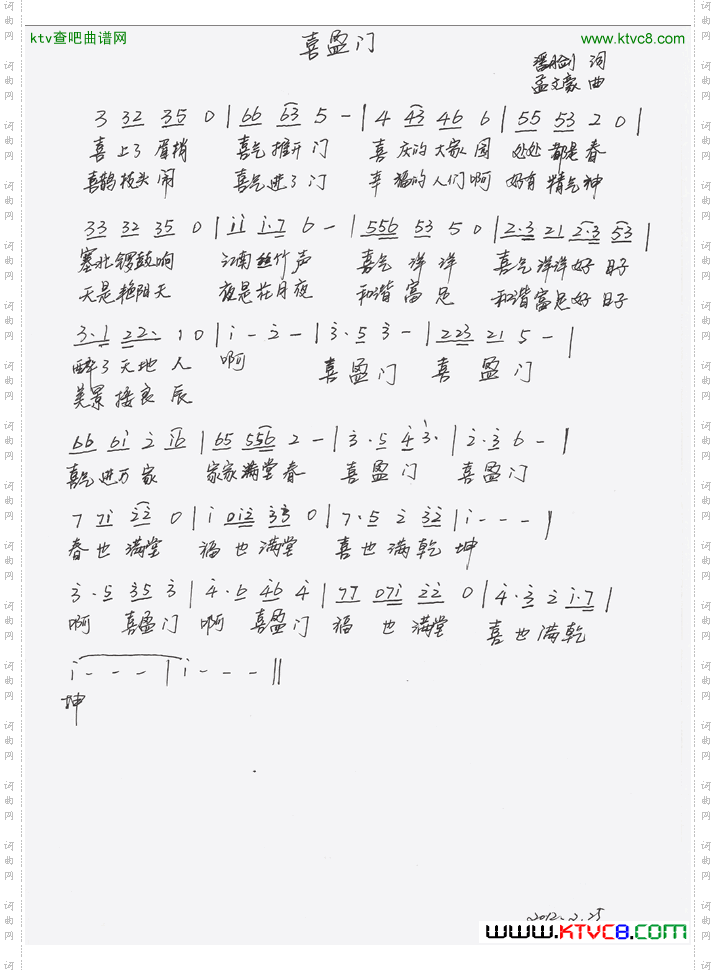 ktv查吧曲谱网
www.ktvc8.com
喜盈门
词
孟文豪 曲
3 32 35 0 | 66 63 5 - | 4 43 46 6 | 55 53 2 0 |
喜 上了 眉梢 喜气 推开 门 喜 庆的 大家 园 处处 都是 春
喜鹊 枝头 闹 喜气 进了 门 幸 福的 人们 啊 好有 精气 神
33 32 35 0 | i i i·7 6 - | 556 53 5 0 | 2·3 21 2·3 53 |
塞北 锣鼓 响 江南 丝竹 声 喜气 洋 洋 喜气 洋洋 好 日子
天是 艳阳 天 夜是 花月 夜 和谐 富 足 和谐 富足 好 日子
3·1 22· 1 0 | i - 2 - | 3·5 3 - | 223 21 5 - |
醉了 天地 人 啊 喜 盈 门 喜 盈 门
美景 接良 辰
66 6i 2 i6 | 65 556 2 - | 3·5 4 3· | 2·3 6 - |
喜气 进万 家 家家 满堂 春 喜 盈 门 喜 盈 门
7 7i 22 0 | i 0i2 33 0 | 7·5 2 32 | i - - - |
春 也 满堂 福 也 满堂 喜 也 满 乾 坤
3·5 35 3 | 4·6 46 4 | 77 07i 22 0 | 4·3 2 i·7 |
啊 喜盈 门 啊 喜盈 门 福 也 满堂 喜 也 满 乾
i - - - | i - - - ||
坤
2012.2.25
www.KTVC8.com
词曲网